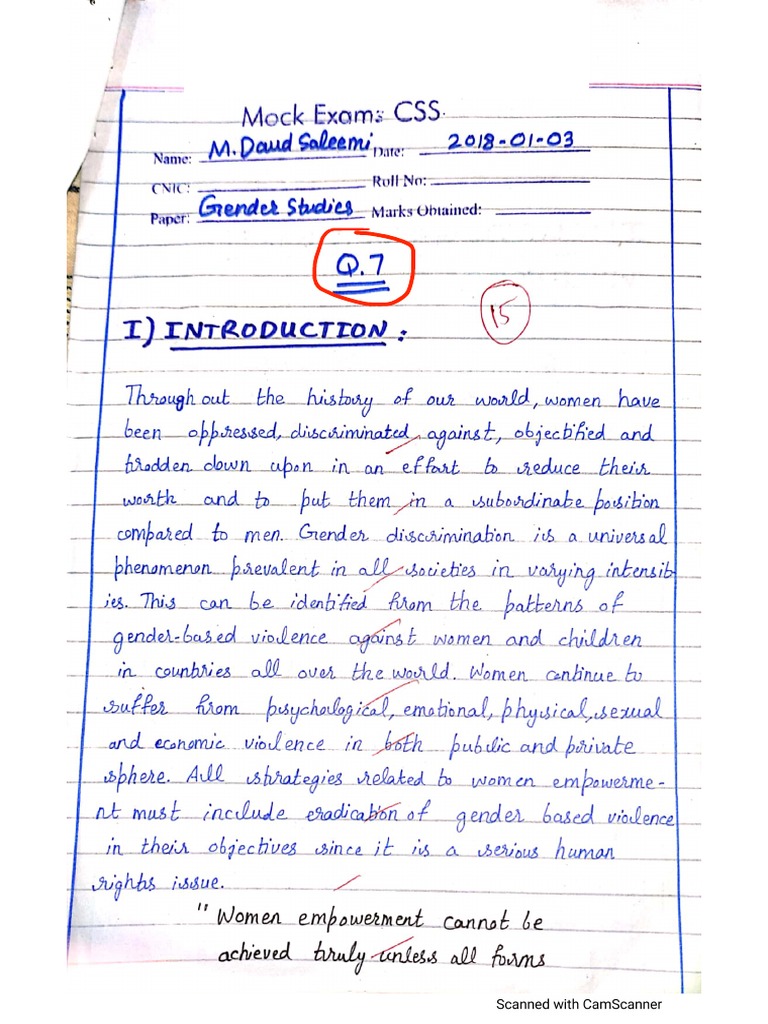 Mock Exams CSS.
Name: M. Daud Saleemi Date: 2018-01-03
CNIC: Roll No:
Paper: Gender Studies Marks Obtained:
Q.7
15
I) INTRODUCTION:
Through out the history of our world, women have
been oppressed, discriminated against, objectified and
trodden down upon in an effort to reduce their
worth and to put them in a subordinate position
compared to men. Gender discrimination is a universal
phenomenon prevalent in all societies in varying intensit-
ies. This can be identified from the patterns of
gender-based violence against women and children
in countries all over the world. Women continue to
suffer from psychological, emotional, physical, sexual
and economic violence in both public and private
sphere. All strategies related to women empowerme-
nt must include eradication of gender based violence
in their objectives since it is a serious human
rights issue.
"Women empowerment cannot be
achieved truly unless all forms
Scanned with CamScanner